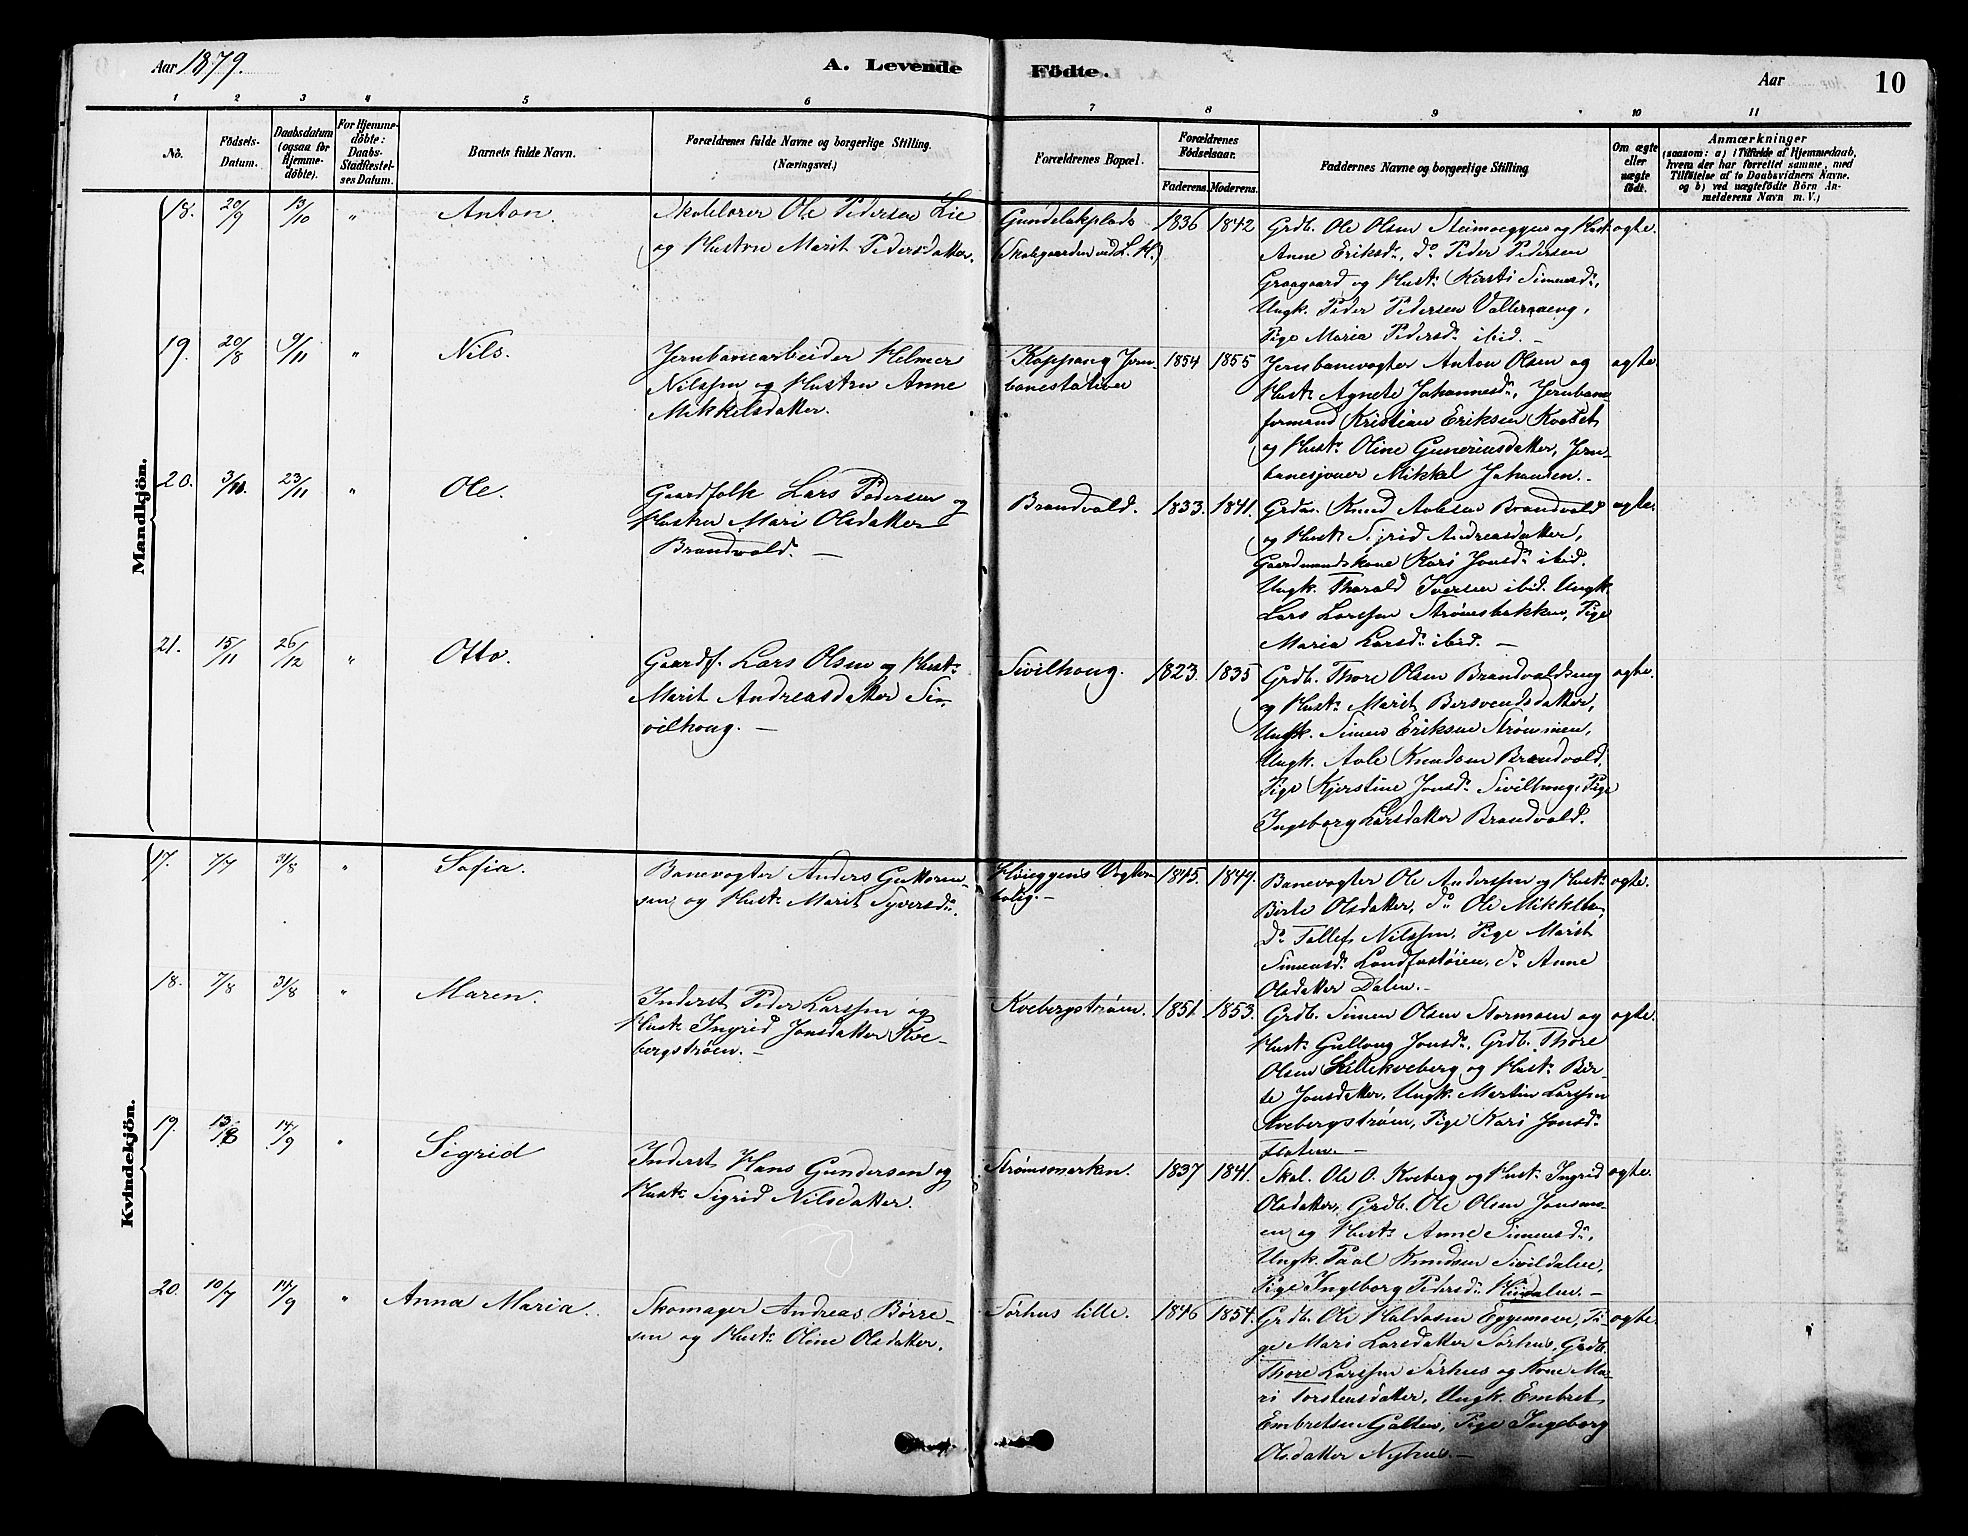 Aar 1879.
A. Levende Födte.
Aar
10
1 2 3 4 5 6 7 8 9 10 11
No.
Födsels-Datum.
Daabsdatum (ogsaa for Hjemmedöbte).
For Hjemmedöbte: Daabs-Stadfæstelses Datum.
Barnets fulde Navn.
Forældrenes fulde Navne og borgerlige Stilling. (Næringsvei.)
Forældrenes Bopæl.
Forældrenes Födselsaar.
Faderens. Moderens.
Faddernes Navne og borgerlige Stilling
Om ægte eller uægte födt.
Anmærkninger
(saasom: a) i Tilfælde af Hjemmedaab, hvem der har forrettet samme, med Tilföielse af to Daabsvidners Navne. og b) ved uægtefödte Börn Anmelderens Navn m. V.)
Mandkjön.
18. 20/9 13/10 " Anton.
Skolelærer Ole Pedersen Lie
og Hustru Marit Pedersdatter.
Gundelakplads
(Skolegaarden ved L. K.)
1836 1842
Grdb. Ole Olsen Steimoeggen og Hust.
Anne Eriksd., do Peder Pedersen
Graagaard og Hust. Kirsti Simensd.,
Ungk. Peder Pedersen Vallerøeng,
Pige Maria Pedersd. ibid. —
ægte.
19. 20/8 9/11 " Nils.
Jernbanearbeider Helmer
Nilssen og Hustru Anne
Mikkelsdatter.
Koppang Jern-
banestation
1854 1855
Jernbanevogter Anton Olsen og
Hust. Agnete Johannesd., Jernbane-
formand Kristian Eriksen Kvast
og Hust. Oline Guneriusdatter, Jern-
banesjouer Mikkel Johansen. —
ægte.
20. 3/10. 23/11 " Ole.
Gaardfolk Lars Pedersen og
Hustru Mari Olsdatter
Brandvold. —
Brandvold.
1833. 1841.
Grdm. Knud Avlesen Brandvold
og Hust. Sigrid Andreasdatter,
Gaardmandskone Kari Jonsd. ibid.
Ungk. Tharald Iversen ibid. Ungk.
Lars Larssen Strømsbakken, Pige
Maria Larsd. ibid. —
ægte.
21. 15/11 26/12 " Otto.
Gaardf. Lars Olsen og Hust.
Marit Andreasdatter Si-
vilhoug. —
Sivilhoug.
1823. 1835
Grdb. Thore Olsen Brandvoldeng
og Hust. Marit Bersvendsdatter,
Ungk. Simen Eriksen Strømmen,
Ungk. Avle Knudsen Brandvold,
Pige Kjerstine Jonsd. Sivilhoug, Pige
Ingeborg Larsdatter Brandvold.
ægte.
Kvindekjön.
17. 7/7 31/8 " Sofia.
Banevogter Anders Guttorm-
sen og Hust. Marit Syversd.
Hoieggens Vogter-
bolig. —
1845. 1849.
Banevogter Ole Anderssen og Hust.
Birte Olsdatter, do Ole Mikkelsen,
do Tollef Nilssen, Pige Marit
Simensd. Landfastøien, do Anne
Olsdatter Dalen. —
ægte.
18. 7/8 31/8 " Maren.
Inderst Peder Larssen og
Hust. Ingrid Jonsdatter Kve-
bergstrøen. —
Kvebergstrøen.
1851. 1853.
Grdb. Simen Olsen Stormoen og
Hust. Gulloug Jonsd., Grdb. Thore
Olsen Lillekveberg og Hust. Bir-
te Jonsdatter, Ungk. Martin Larssen
Kvebergstrøen, Pige Kari Jonsd.
Floten. —
ægte.
19. 13/8 14/9 " Sigrid
Inderst Hans Gundersen og
Hust. Sigrid Nilsdatter.
Strømsmarken.
1837 1841.
Skol. Ole O. Kveberg og Hust. Ingrid
Olsdatter, Grdb. Ole Olsen Jonsmo-
en og Hust. Anne Simensd.,
Ungk. Paal Knudsen Sivildalen,
Pige Ingeborg Pedersd. —
ægte.
20. 10/7 14/9 " Anna Maria.
Skomager Andreas Børre-
sen og Hust. Oline Olsdatter.
Sørhus lille.
1846 1854.
Grdb. Ole Haldosen Eggemoen, Pi-
ge Mari Larsdatter Sørhus, Grdb.
Thore Larssen Sørhus og Kone Ma-
ri Torstensdatter, Ungk. Embret
Embretsen Galten, Pige Ingeborg
Olsdatter Nyhus. —
ægte.